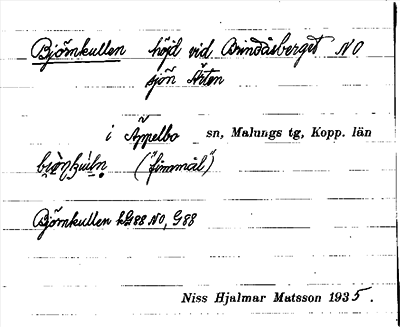 Björnkullen höjd vid Brindåsberget NO
sjön Ärten
i Äppelbo sn, Malungs tg, Kopp. län
("finnmål")
Björnkullen hG88 NO, G88
Niss Hjalmar Matsson 1935.